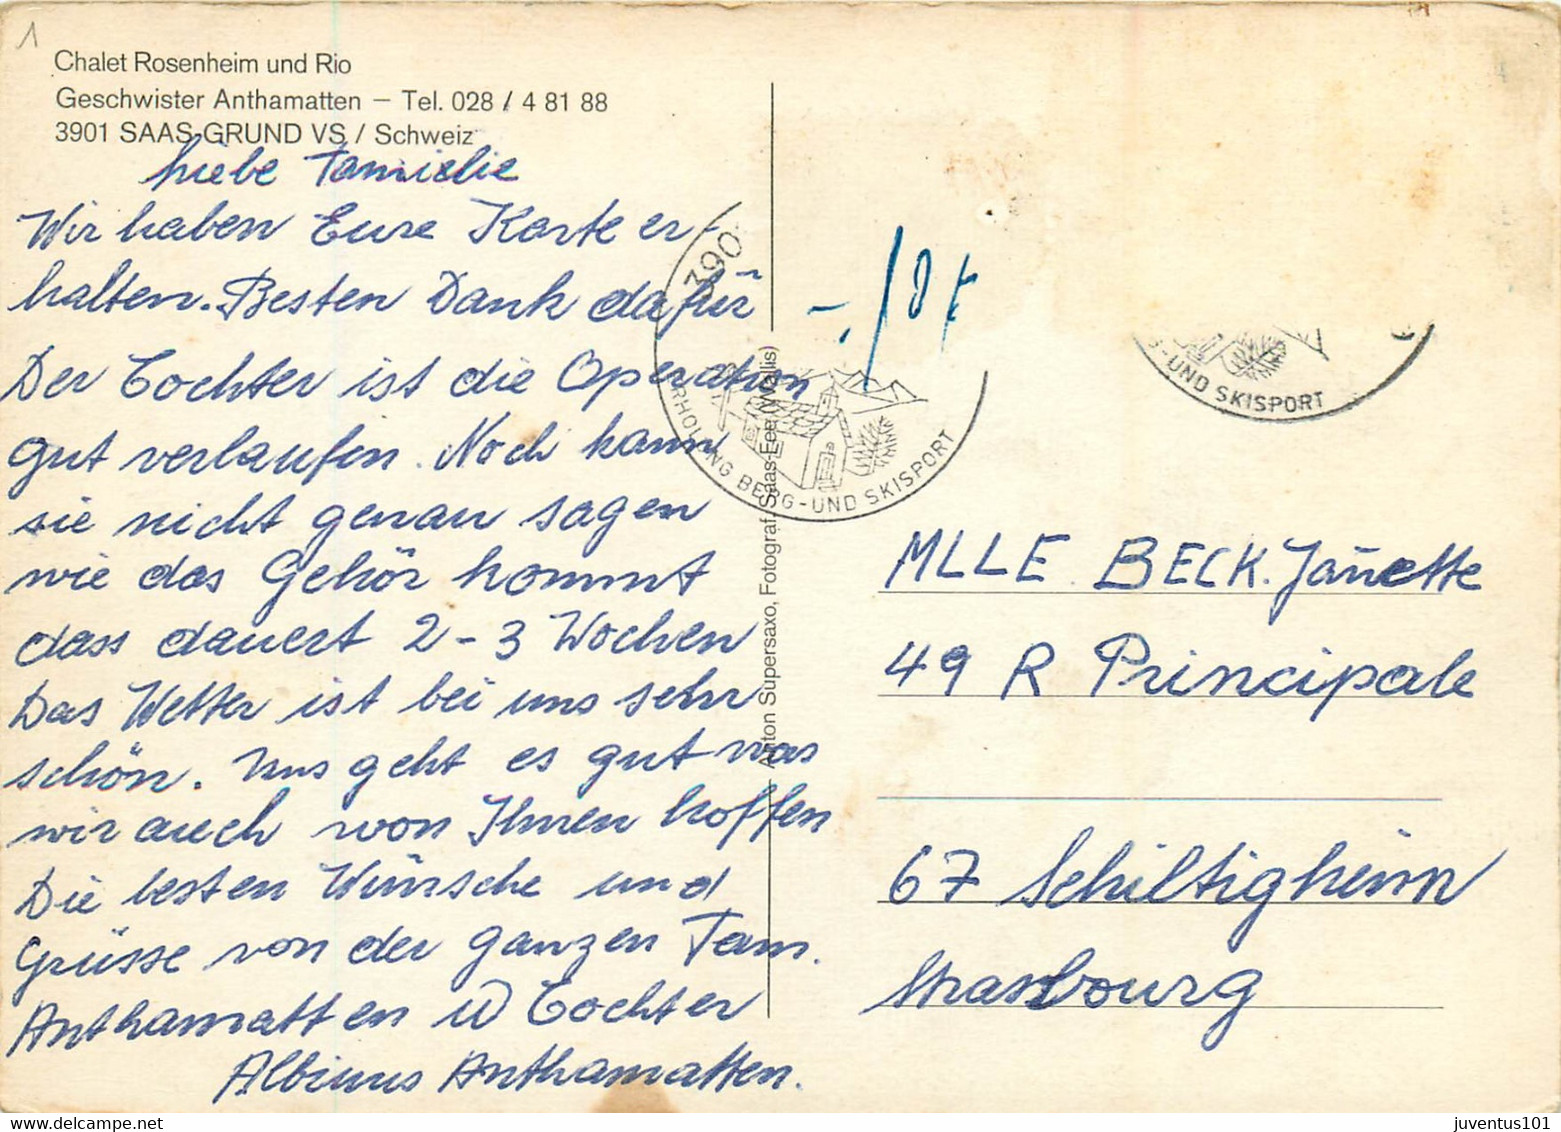 1
Chalet Rosenheim und Rio
Geschwister Anthamatten – Tel. 028 / 4 81 88
3901 SAAS-GRUND VS / Schweiz
Liebe Familie
Wir haben Eure Karte er-
halten. Besten Dank dafür
Der Tochter ist die Operation
gut verlaufen. Noch kann
sie nicht genau sagen
wie das Gehör kommt
dass dauert 2-3 Wochen
Das Wetter ist bei uns sehr
schön. Uns geht es gut was
wir auch von Ihnen hoffen
Die besten Wünsche und
Grüsse von der ganzen Fam.
Anthamatten u Tochter
Albinus Anthamatten.
Anton Supersaxo, Fotograf, Saas-Fee (Wallis)
390
ERHOLUNG BERG-UND SKISPORT
G-UND SKISPORT
MLLE. BECK. Janette
49 R Principale
67 Schiltigheim
Strasbourg
juventus101